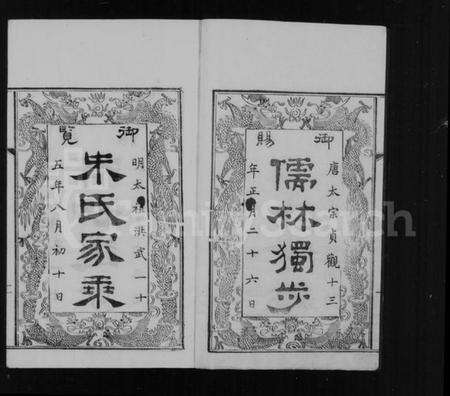 御賜
唐太宗貞觀十三
儒林獨步
年正月二十六日
御覽
明太祖洪武一十
朱氏家乘
五年八月初十日
FamilySearch